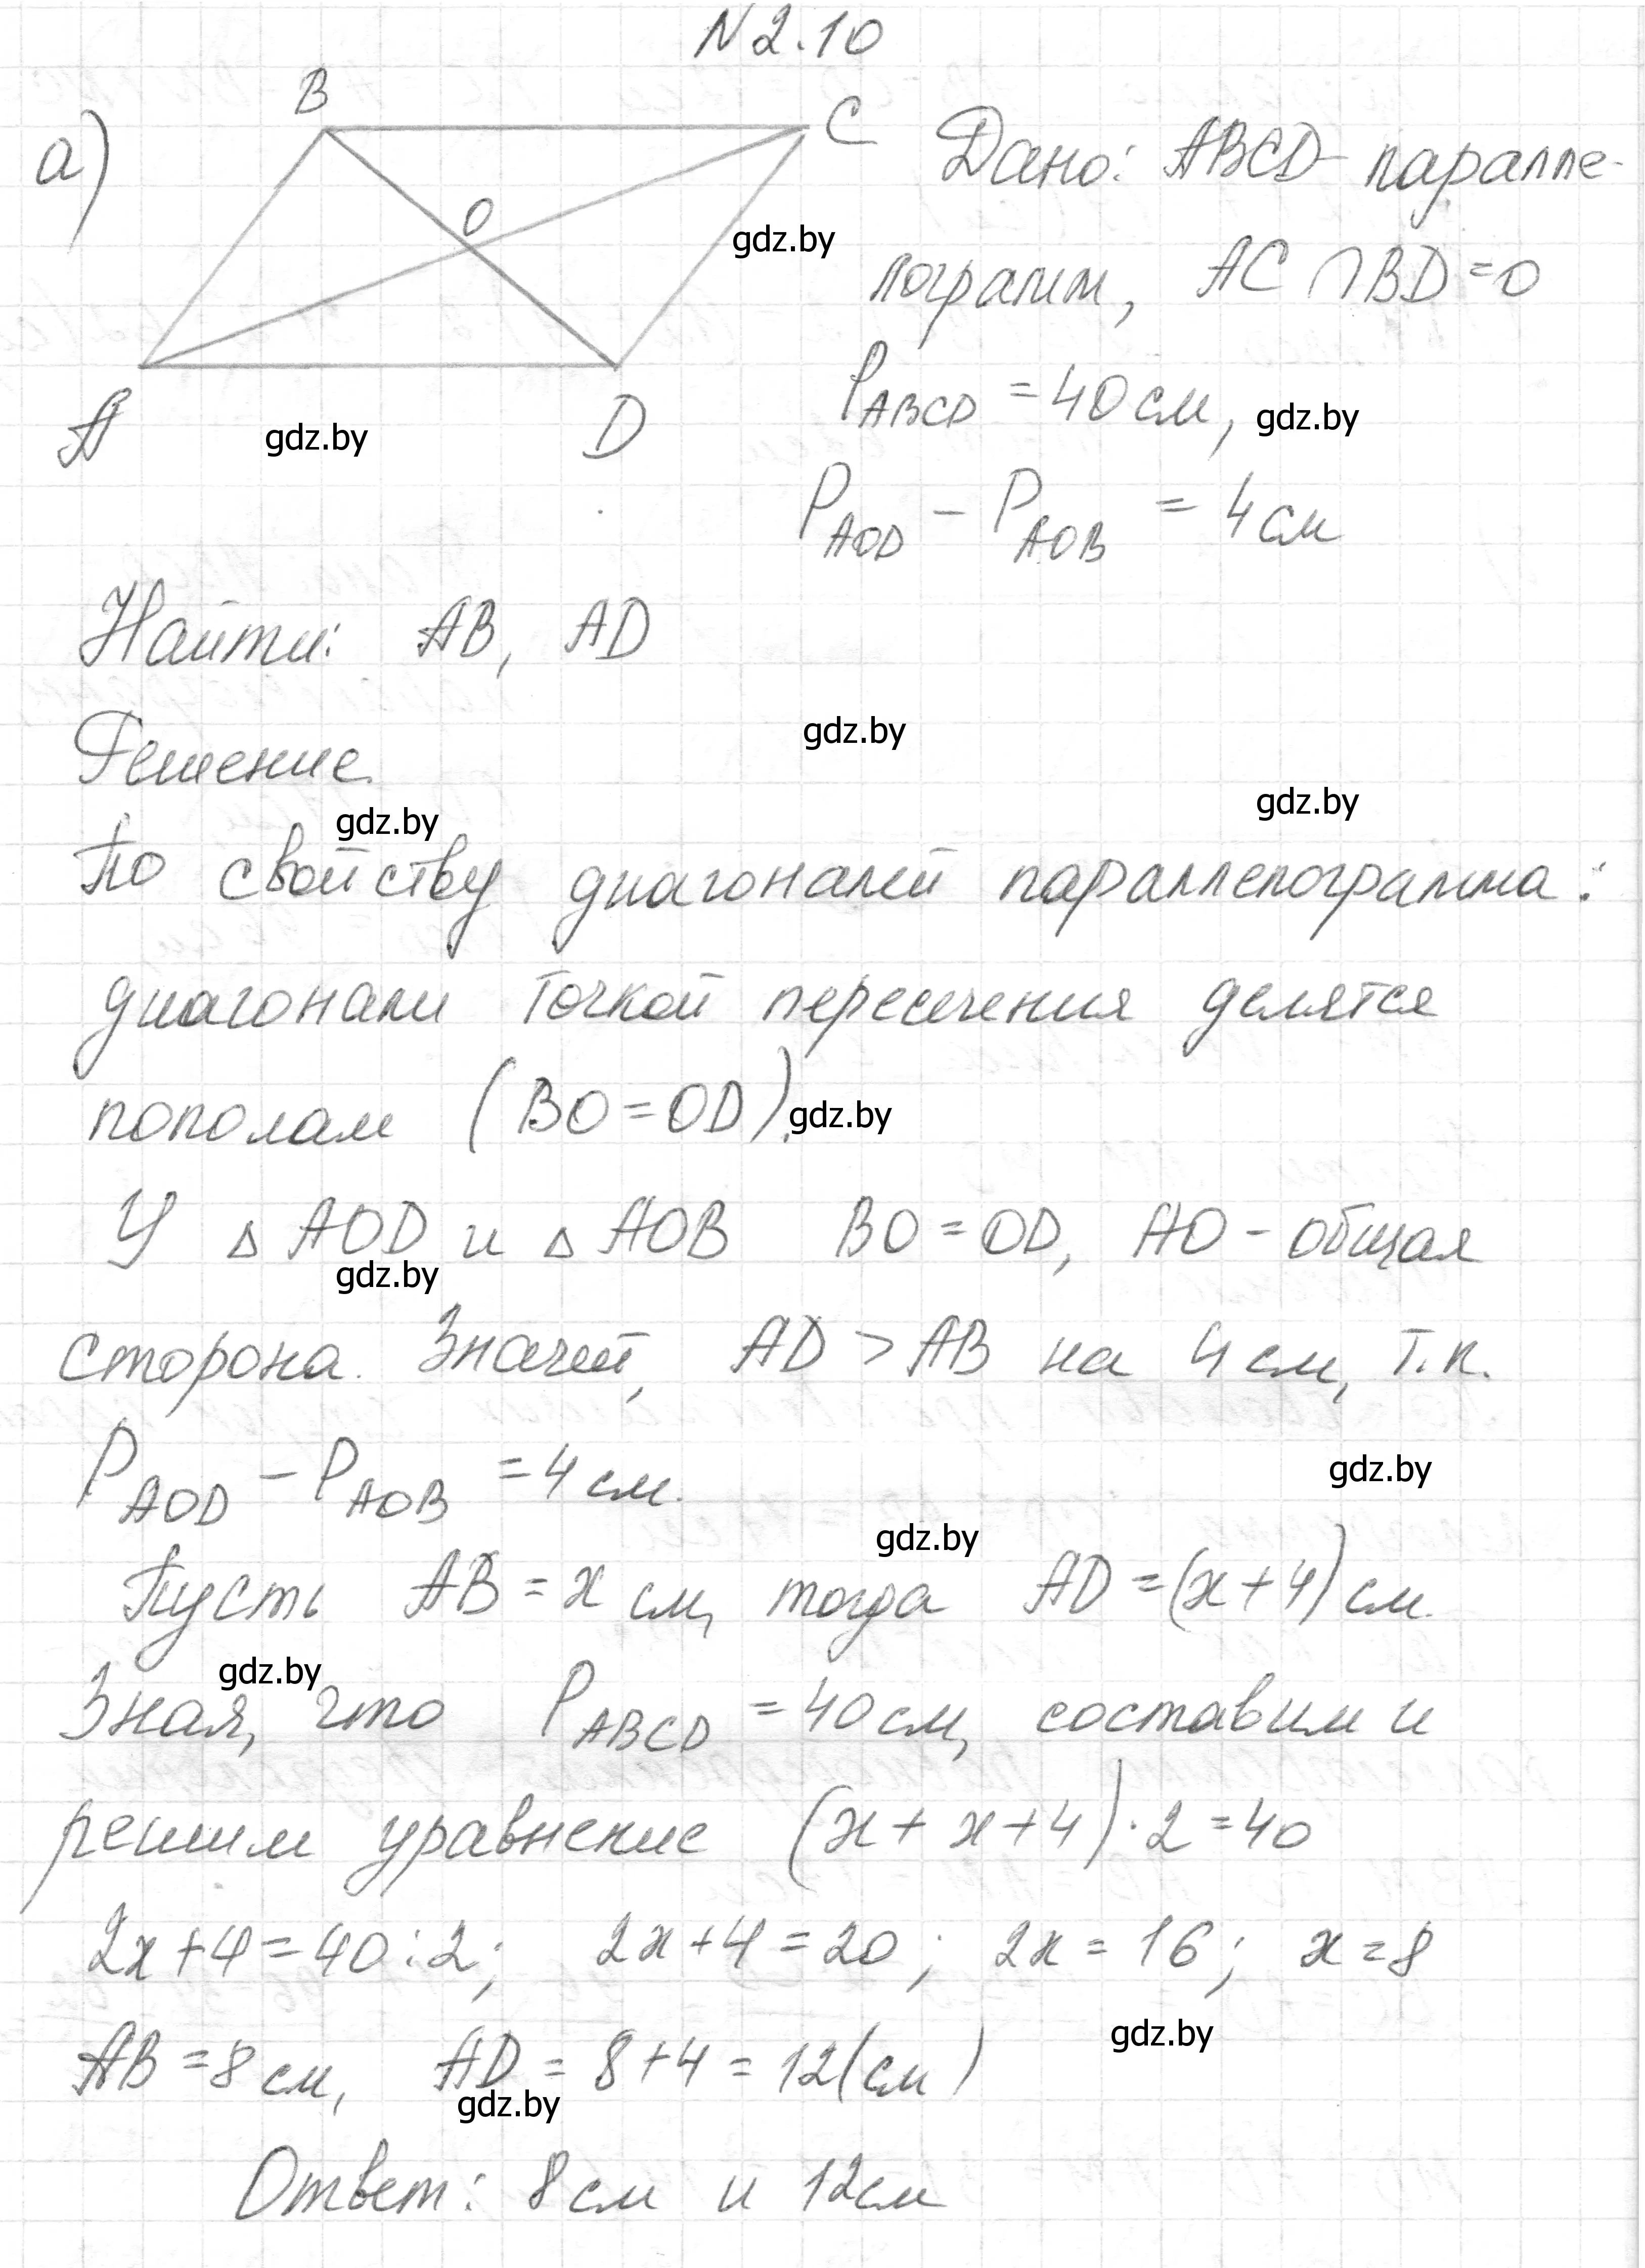 N 2.10
а)
B
C
O
A
D
Дано: ABCD - паралле-
gdz.by
лограмм, AC ∩ BD = O
P_ABCD = 40 см,
gdz.by
gdz.by
P_AOD - P_AOB = 4 см
Найти: AB, AD
gdz.by
Решение.
gdz.by
gdz.by
По свойству диагоналей параллелограмма:
диагонали точкой пересечения делятся
пополам (BO = OD).
gdz.by
У △ AOD и △ AOB BO = OD, AO - общая
gdz.by
сторона. Значит, AD > AB на 4 см, т.к.
P_AOD - P_AOB = 4 см.
gdz.by
gdz.by
Пусть AB = x см, тогда AD = (x + 4) см.
gdz.by
Зная, что P_ABCD = 40 см, составим и
решим уравнение (x + x + 4) · 2 = 40
2x + 4 = 40 : 2; 2x + 4 = 20; 2x = 16; x = 8
gdz.by
AB = 8 см, AD = 8 + 4 = 12 (см)
gdz.by
Ответ: 8 см и 12 см